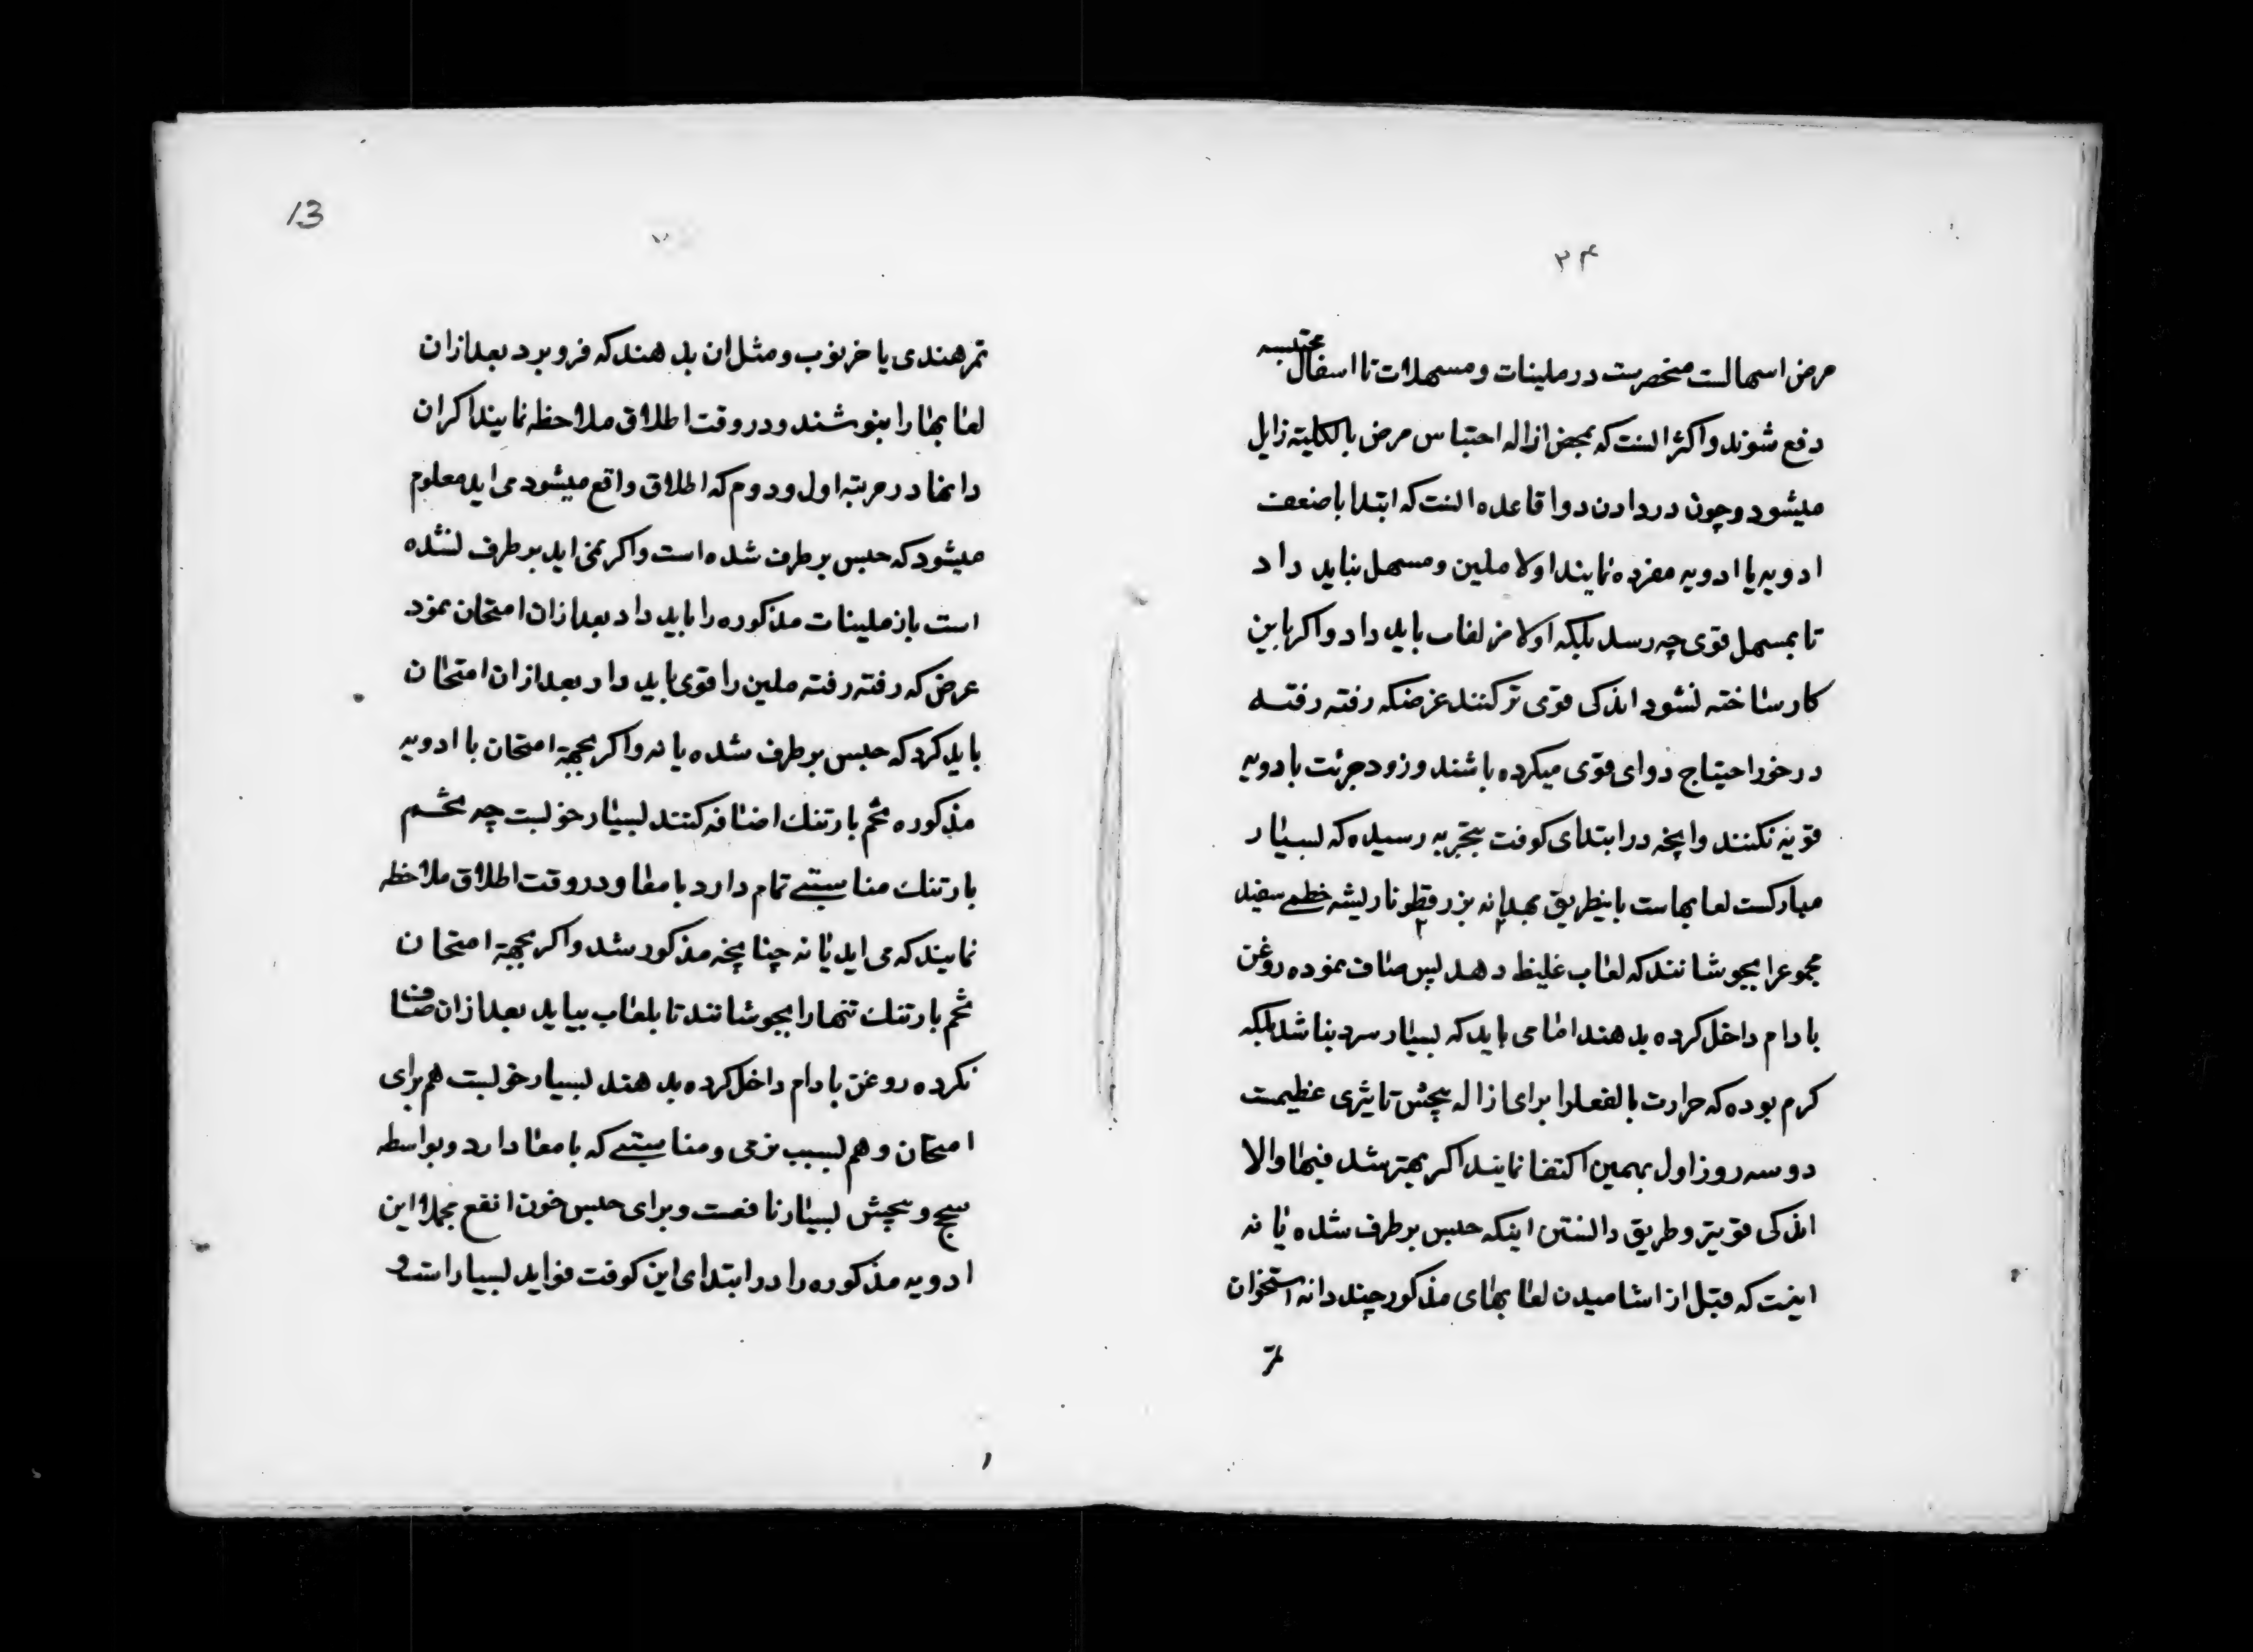 ۲۴
مرض اسهالست منحصرست در ملینات و مسهلات تا اسفال محتبسه
دفع شوند و اکثر انست که بمحض ازاله احتباس مرض بالکلیته زایل
میشود و چون در دادن دوا قاعده انست که ابتدا باضعف
ادویه یا ادویه مفرده نمایند اولا ملین و مسهل نباید داد
تا بمسهل قوی چه رسد بلکه اولا مزلقات باید داد و اکر باین
کار ساخته نشود اندکی قوی تر کنند غرضکه رفته رفته
در خور احتیاج دوای قوی میکرده باشند و زود جرئت بادویه
قویه نکنند و انچه در ابتدای کوفت بتجربه رسیده که بسیار
مبارکست لعابهاست باینطریق بهدانه بزرقطونا ریشه خطمی سفید
مجموعرا بجوشانند که لعاب غلیظ دهد پس صاف نموده روغن
بادام داخل کرده بدهند اما می باید که بسیار سرد نباشد بلکه
کرم بوده که حرارت بالفعلرا برای ازاله پیچش تاثیری عظیمست
دو سه روز اول بهمین اکتفا نمایند اکر بهتر شد فبها والا
اندکی قویتر و طریق دانستن اینکه حبس برطرف شده یا نه
اینست که قبل از اشامیدن لعابهای مذکور چند دانه استخوان
تمر
13
تمرهندی یا خرنوب و مثل ان بدهند که فرو برد بعد ازان
لعابها را بنوشند و در وقت اطلاق ملاحظه نمایند اکر ان
دانها در مرتبه اول و دوم که اطلاق واقع میشود می اید معلوم
میشود که حبس برطرف شده است و اکر نمی اید برطرف نشده
است باز ملینات مذکوره را باید داد بعد ازان امتحان نمود
غرض که رفته رفته ملین را قوی باید داد بعد ازان امتحان
باید کرد که حبس برطرف شده یا نه و اکر بجهة امتحان با ادویه
مذکوره تخم بارتنك اضافه کنند بسیار خوبست چه تخم
بارتنك مناسبتی تمام دارد بامعا و در وقت اطلاق ملاحظه
نمایند که می اید یا نه چنانچه مذکور شد و اکر بجهة امتحان
تخم بارتنك تنها را بجوشانند تا بلعاب بیاید بعد ازان صاف
نکرده روغن بادام داخل کرده بدهند بسیار خوبست هم برای
امتحان و هم بسبب نرمی و مناسبتی که بامعا دارد و بواسطه
سحج و پیچش بسیار نافعست و برای حبس خون انفع مجملا این
ادویه مذکوره را در ابتدای این کوفت فواید بسیار است و